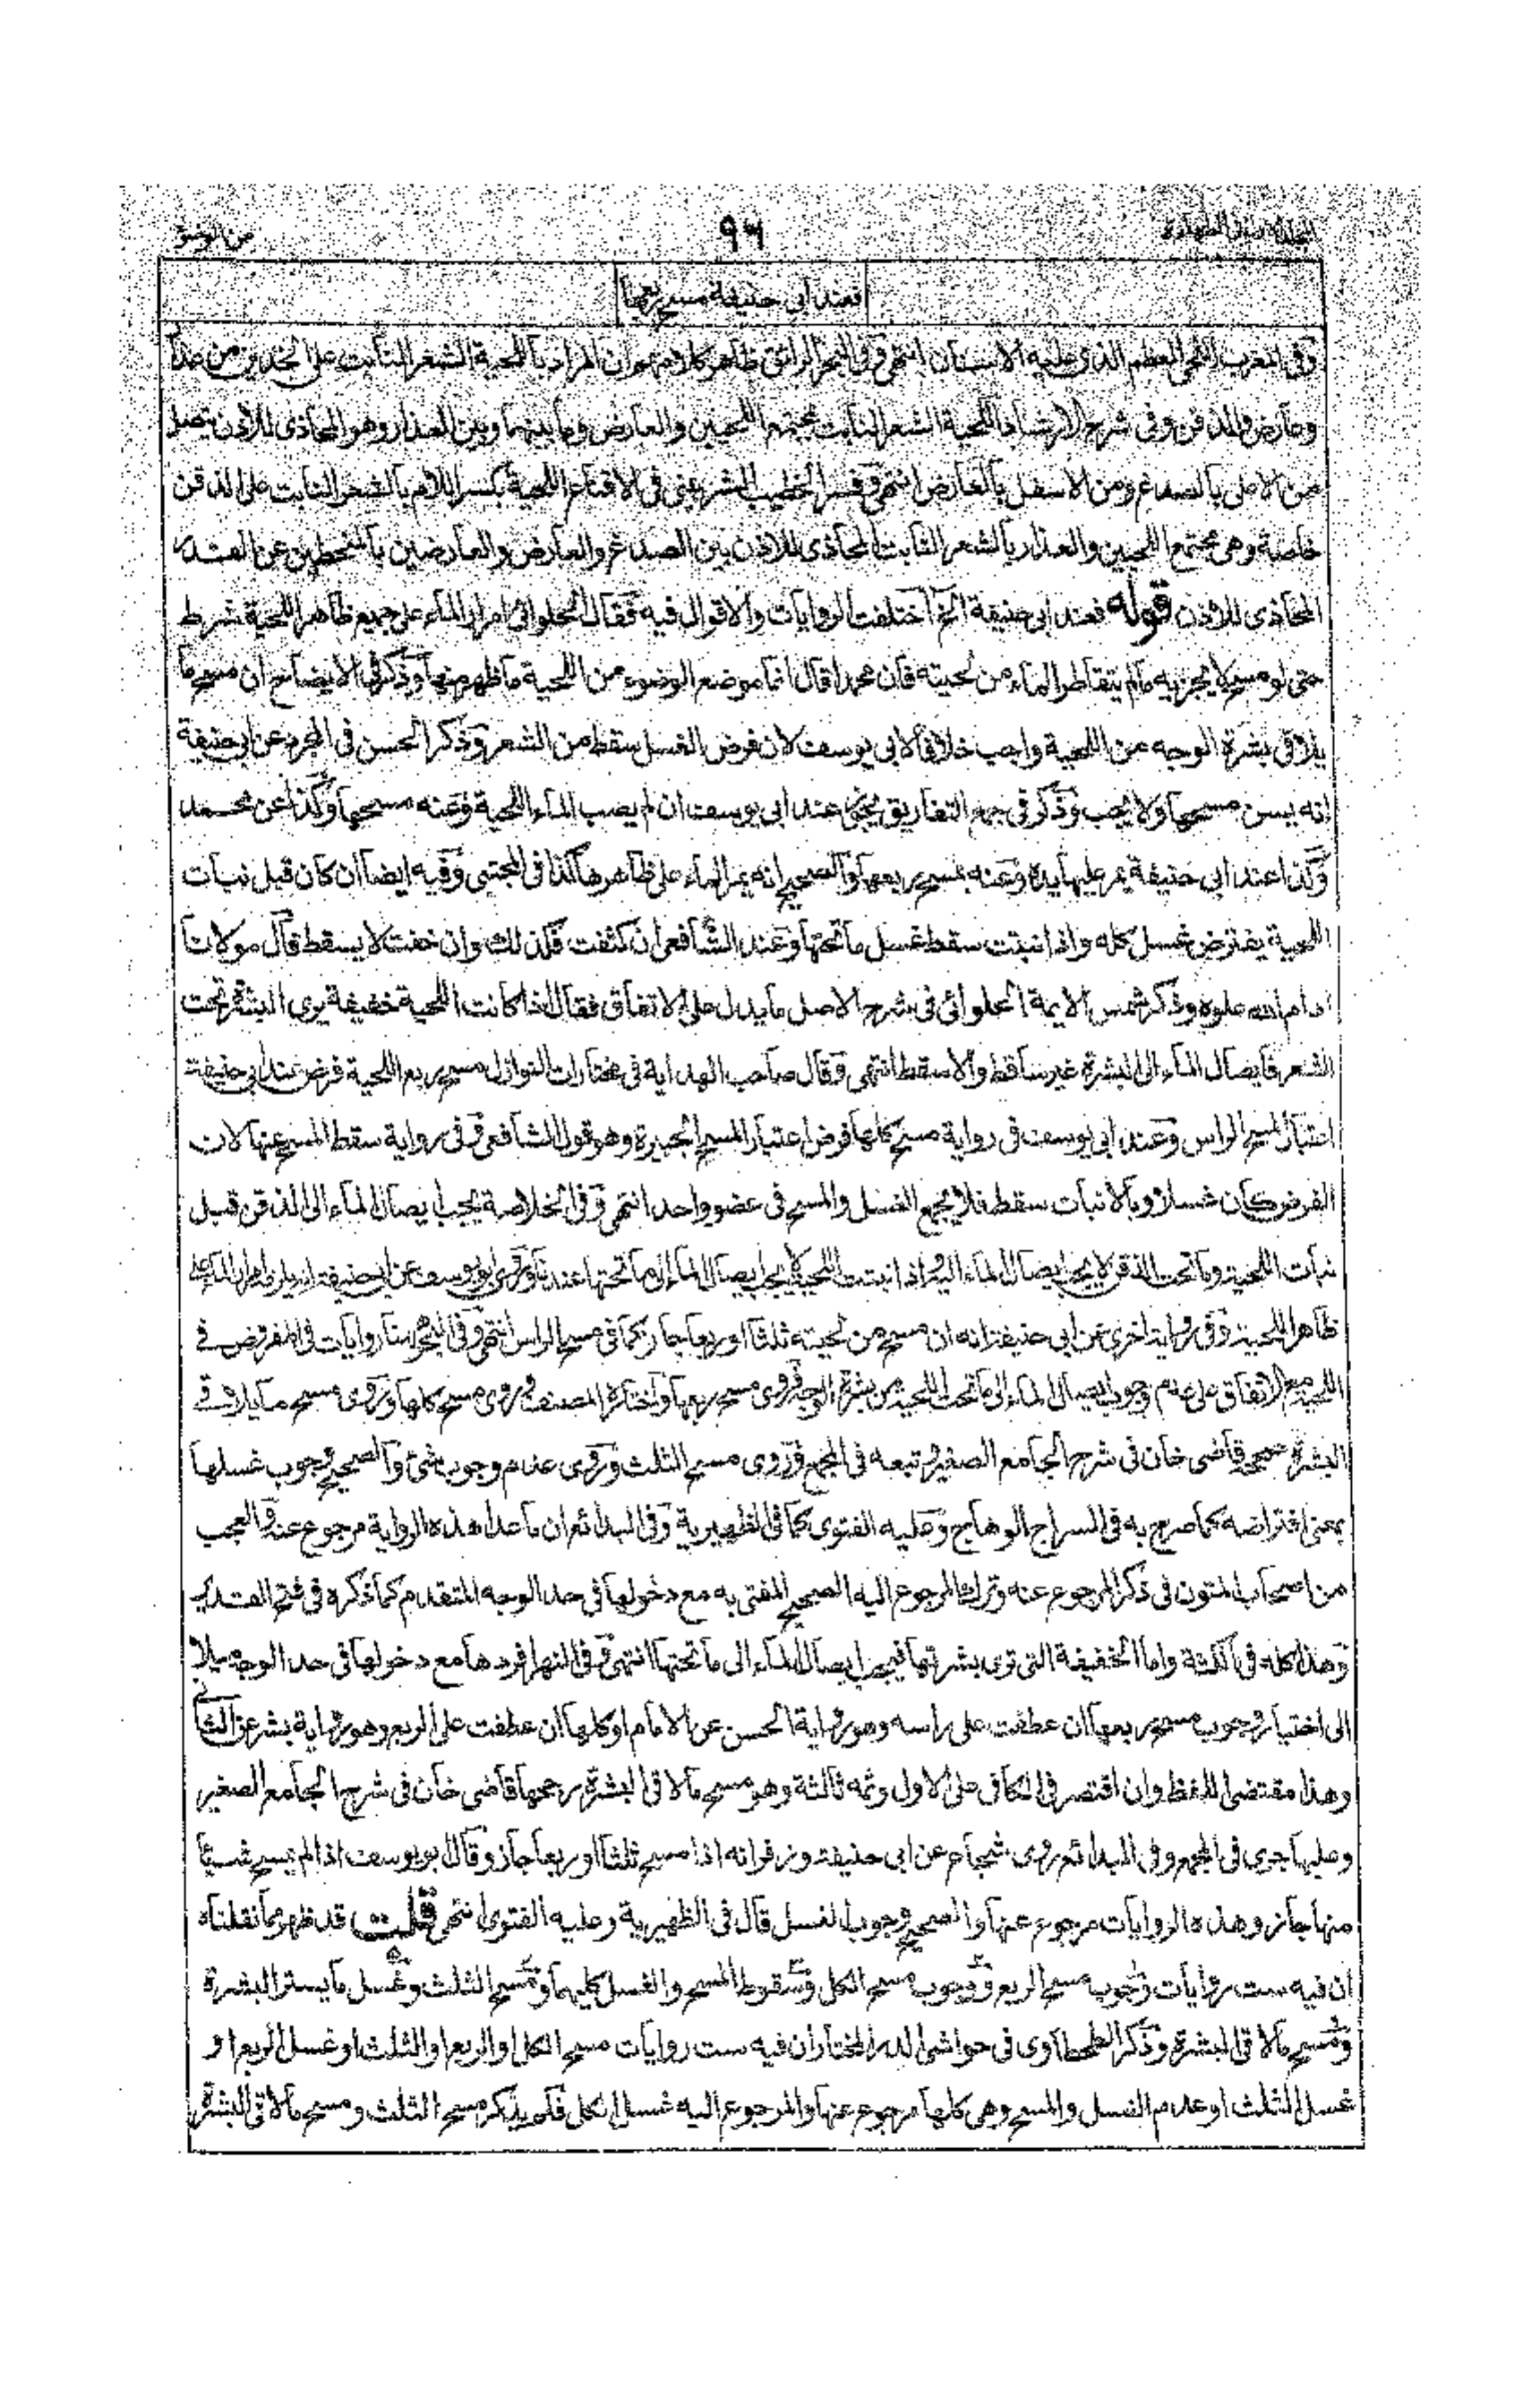 ٩٦
من الوضوء
فعند ابي حنيفة مسح ربعها
وفى المغرب اللحى العظم الذى عليه الاسنان انتهى وفى البحر الرائق ظاهر كلامهم ان المراد باللحية الشعر النابت على الخدين من عذار
وعارض والذقن وفى شرح الارشاد اللحية الشعر النابت بمجتمع اللحيين والعارض وما بينهما وبين العذار وهو المحاذى للاذن يتصل
من الاعلى بالصدغ ومن الاسفل بالعارض انتهى وفسر الخطيب الشربينى فى الاقناع اللحية بكسر اللام بالشعر النابت على الذقن
خاصة وهى مجتمع اللحيين والعذار بالشعر النابت المحاذى للاذن بين الصدغ والعارض والعارضين بالمنحطين عن القدر
المحاذى للاذن قوله فعند ابى حنيفة الخ اختلفت الروايات والاقوال فيه فقال الحلوائى امرار الماء على جميع ظاهر اللحية شرط
حتى لو مسح لا يجزيه مالم يتقاطر الماء من لحيته فان محمدا قال انما موضع الوضوء من اللحية ما ظهر منها وذكر فى الايضاح ان مسح ما
يلاقى بشرة الوجه من اللحية واجب خلافا لابى يوسف لان فرض الغسل سقط من الشعر وذكر الحسن فى المجرد عن ابى حنيفة
انه يسن مسحها ولا يجب وذكر فى جمع التفاريق يجزئ عند ابى يوسف ان لم يصب الماء اللحية وعنه مسحها وكذا عن محمد
وكذا عند ابى حنيفة يمر عليها يده وعنه يمسح ربعها والصحيح انه يمر الماء على ظاهرها كذا فى المجتبى وفيه ايضا ان كان قبل نبات
اللحية يفترض غسل كله واذا نبتت سقط غسل ما تحتها وعند الشافعى ان كثفت فكذلك وان خفت لا يسقط قال مولانا
ادام الله علوه وذكر شمس الايمة الحلوائى فى شرح الاصل ما يدل على الاتفاق فقال اذا كانت اللحية خفيفة يرى البشرة تحت
الشعر فايصال الماء الى البشرة غير ساقط والا سقط انتهى وقال صاحب الهداية فى مختارات النوازل مسح ربع اللحية فرض عند ابى حنيفة
اعتبارا لمسح الراس وعند ابى يوسف فى رواية مسح كلها فرض اعتبارا لمسح الجبيرة وهو قول الشافعى وفى رواية سقط المسح عنها لان
الفرض كان غسلا وبالانبات سقط فلا يجمع الغسل والمسح فى عضو واحد انتهى وفى الخلاصة يجب ايصال الماء الى الذقن قبل
نبات اللحية وما تحت الذقن لا يجب ايصال الماء اليه واذا نبتت اللحية لا يجب ايصال الماء الى ما تحتها عندنا وروى ابو يوسف عن ابى حنيفة امرار الماء على
ظاهر اللحية وفى رواية اخرى عن ابى حنيفة انه ان مسح من لحيته ثلثا او ربعا جاز كما فى مسح الراس انتهى وفى البحر هنا روايات فى المفروض فى
اللحية مع الاتفاق على عدم وجوب ايصال الماء الى ما تحت اللحية من بشرة الوجه فروى مسح ربعها واختاره المصنف وروى مسح كلها وروى مسح ما يلاقى
البشرة صححه قاضى خان فى شرح الجامع الصغير وتبعه فى المجمع وروى مسح الثلث وروى عدم وجوب شئ والصحيح وجوب غسلها
بمعنى افتراضه كما صرح به فى السراج الوهاج وعليه الفتوى كما فى الظهيرية وفى البدائع ان ما عدا هذه الرواية مرجوع عنه والعجب
من اصحاب المتون فى ذكر المرجوع عنه وترك المرجوع اليه الصحيح المفتى به مع دخولها فى حد الوجه المتقدم كما ذكره فى فتح القدير
وهذا كله فى الكثة واما الخفيفة التى ترى بشرتها فيجب ايصال الماء الى ما تحتها انتهى وفى النهر افردها مع دخولها فى حد الوجه ميلا
الى اختيار وجوب مسح ربعها ان عطفت على راسه وهو رواية الحسن عن الامام او كلها ان عطفت على الربع وهو رواية بشر عن الثانى
وهذا مقتضى اللفظ وان اقتصر فى الكافى على الاول وثمه ثالثة وهو مسح ما لاقى البشرة رجحها قاضى خان فى شرح الجامع الصغير
وعليها جرى فى المجمع وفى البدائع روى شجاع عن ابى حنيفة وزفر انه اذا مسح ثلثا او ربعا جاز وقال ابو يوسف اذا لم يمسح شيئا
منها جاز وهذه الروايات مرجوع عنها والصحيح وجوب الغسل قال فى الظهيرية وعليه الفتوى انتهى قلت قد ظهر مما نقلناه
ان فيه ست روايات وجوب مسح الربع ووجوب مسح الكل وسقوط المسح والغسل كليهما ومسح الثلث وغسل ما يستر البشرة
ومسح ما لاقى البشرة وذكر الطحطاوى فى حواشى الدر المختار ان فيه ست روايات مسح الكل او الربع او الثلث او غسل الربع او
غسل الثلث او عدم الغسل والمسح وهى كلها مرجوع عنها والمرجوع اليه غسل الكل فلم يذكر مسح الثلث ومسح ما لاقى البشرة